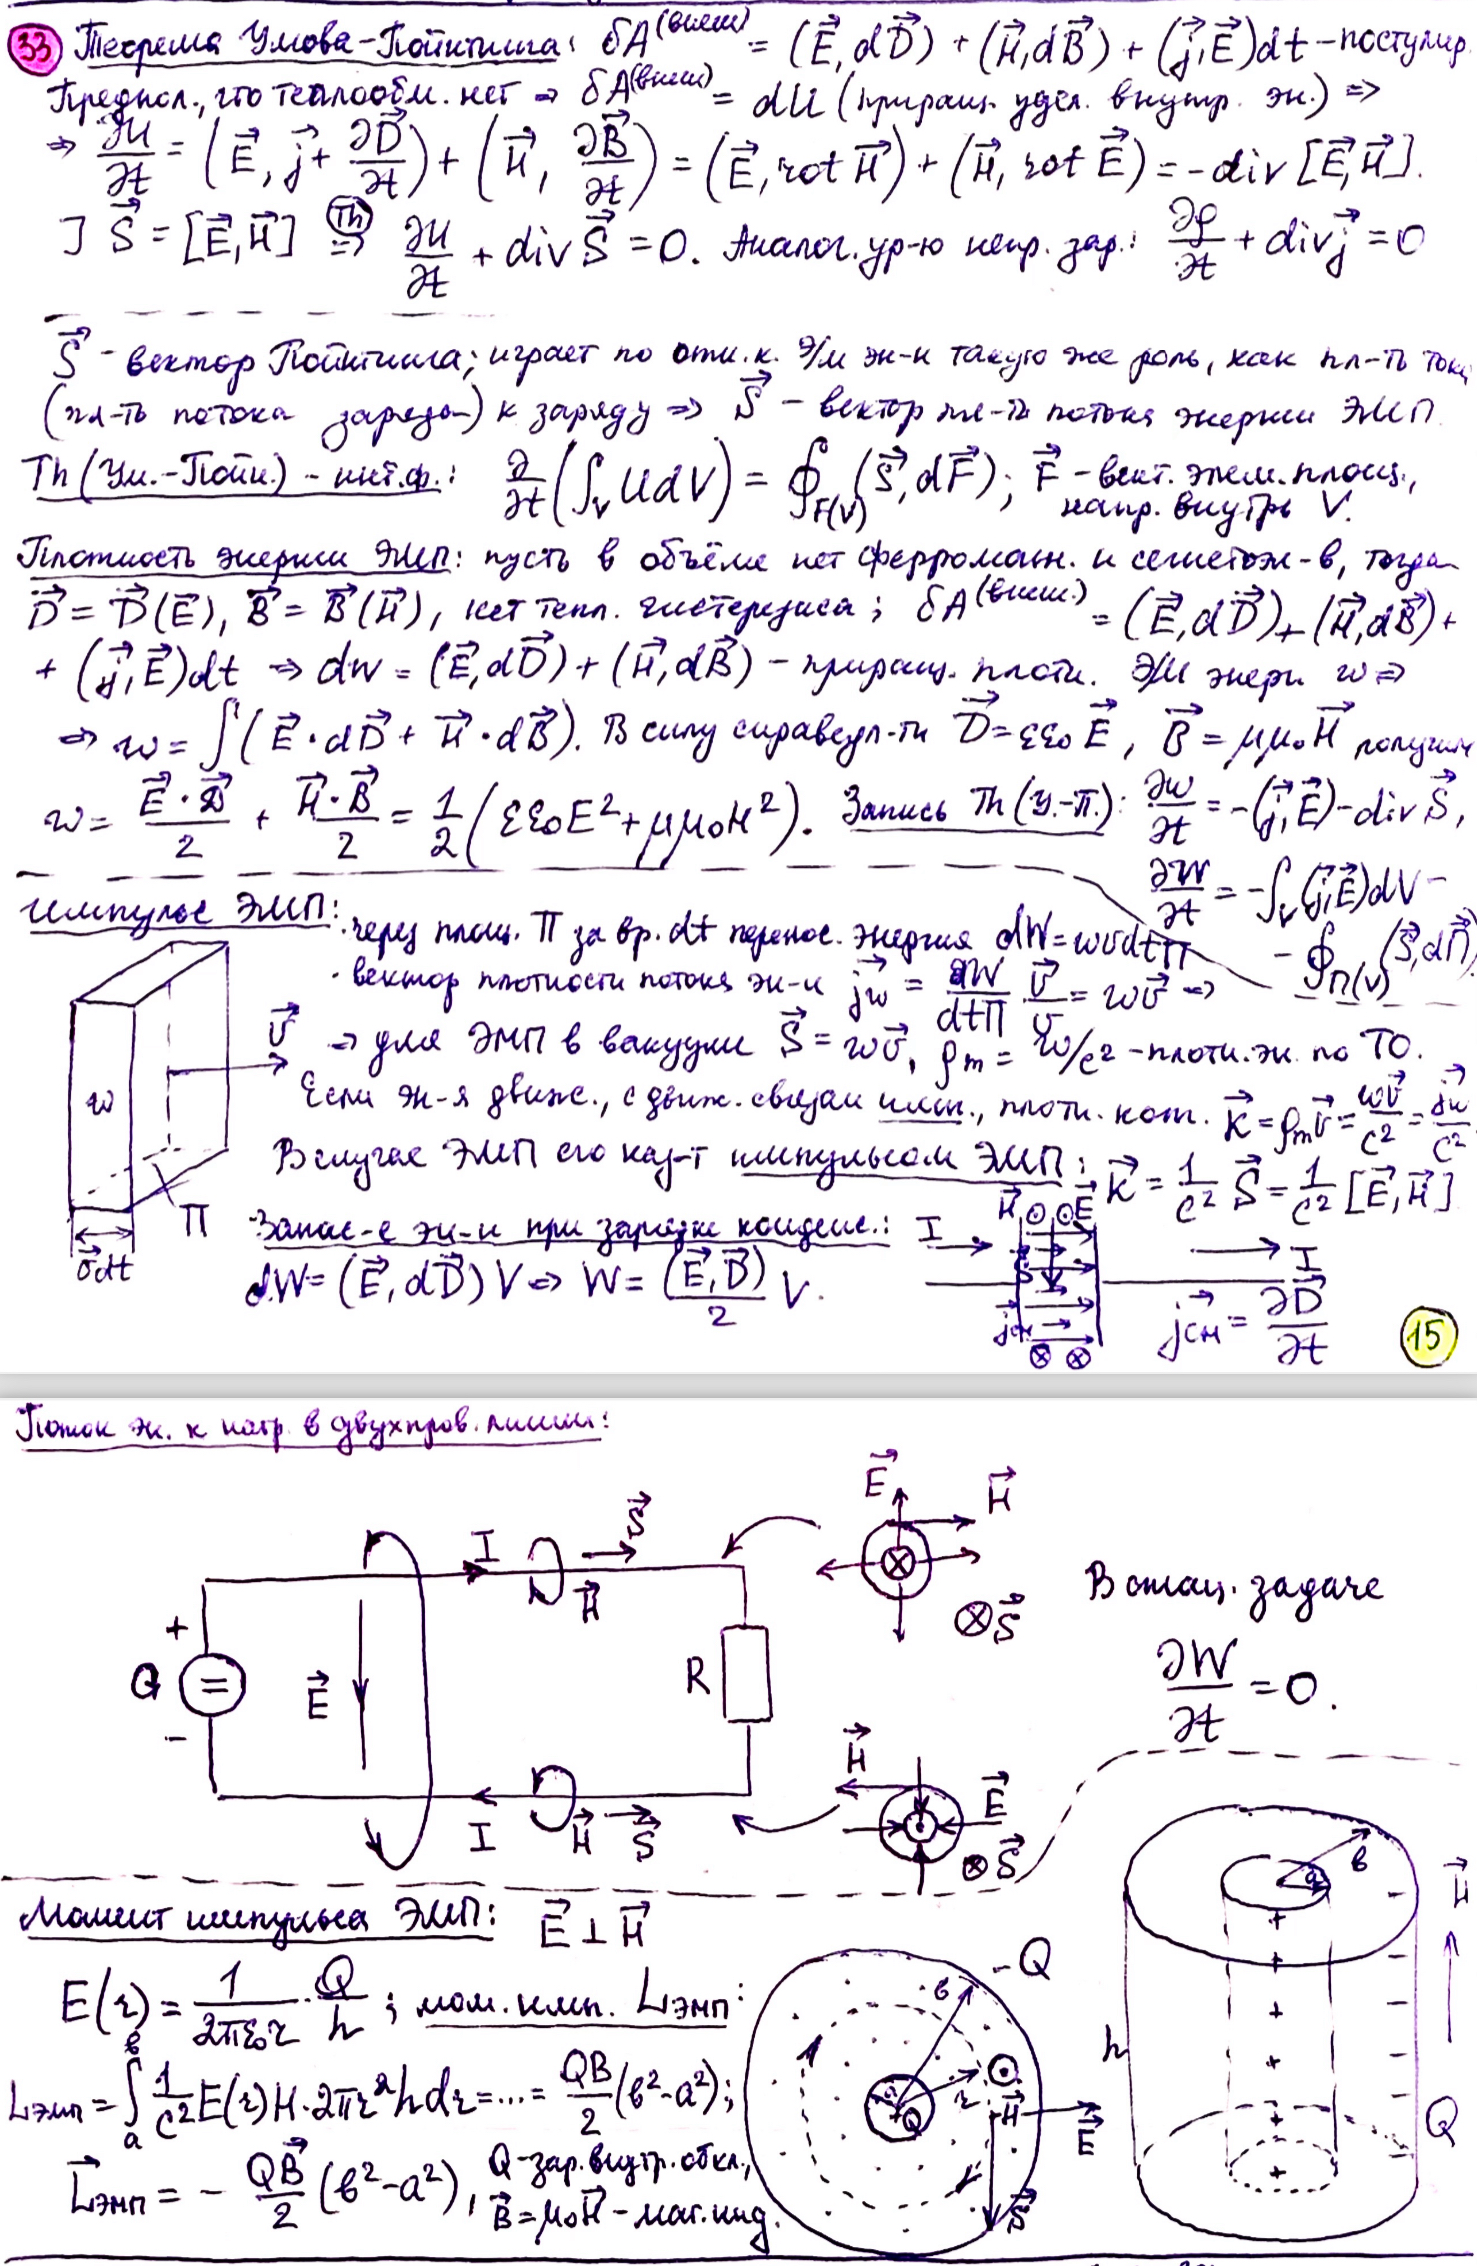 33 Теорема Умова-Пойнтинга: δA^(внеш) = (E⃗, dD⃗) + (H⃗, dB⃗) + (j⃗, E⃗)dt – постулир.
Предпол., что теплообм. нет ⇒ δA^(внеш) = dU (приращ. удел. внутр. эн.) ⇒
⇒ ∂U/∂t = (E⃗, j⃗ + ∂D⃗/∂t) + (H⃗, ∂B⃗/∂t) = (E⃗, rot H⃗) + (H⃗, rot E⃗) = -div [E⃗, H⃗].
] S⃗ = [E⃗, H⃗] (Th)⇒ ∂U/∂t + div S⃗ = 0. Аналог. ур-ю непр. зар.: ∂ρ/∂t + div j⃗ = 0
S⃗ - вектор Пойнтинга; играет по отн. к. Э/м эн-и такую же роль, как пл-ть тока
(пл-ть потока заряда) к заряду ⇒ S⃗ – вектор пл-ти потока энергии ЭМП.
Th (Ум.-Пойн.) – инт.ф.: ∂/∂t (∫_V U dV) = ∮_F(V) (S⃗, dF⃗); F⃗ – вект. элем. площ.,
напр. внутрь V.
Плотность энергии ЭМП: пусть в объёме нет ферромагн. и сегнетоэл-в, тогда
D⃗ = D⃗(E⃗), B⃗ = B⃗(H⃗), нет тепл. гистерезиса; δA^(внеш.) = (E⃗, dD⃗) + (H⃗, dB⃗) +
+ (j⃗, E⃗)dt ⇒ dw = (E⃗, dD⃗) + (H⃗, dB⃗) – приращ. плотн. Э/М энерг. w ⇒
⇒ w = ∫(E⃗·dD⃗ + H⃗·dB⃗). В силу справедл-ти D⃗ = εε₀E⃗, B⃗ = μμ₀H⃗ получим
w = E⃗·D⃗/2 + H⃗·B⃗/2 = 1/2 (εε₀E² + μμ₀H²). Запись Th (У.-П.): ∂w/∂t = -(j⃗, E⃗) - div S⃗,
∂W/∂t = -∫_V (j⃗, E⃗)dV -
- ∮_П(V) (S⃗, dП⃗)
Импульс ЭМП: · через площ. П за вр. dt перенос. энергия dW = wvdtП
· вектор плотности потока эн-и j⃗w = dW/dtП v⃗/v = wv⃗ ⇒
⇒ для ЭМП в вакууме S⃗ = wv⃗, ρm = w/c² – плотн. эн. по ТО.
Если эн-я движ., с движ. связан имп., плотн. кот. K⃗ = ρm v⃗ = wv⃗/c² = j⃗w/c²
В случае ЭМП его наз-т импульсом ЭМП: K⃗ = 1/c² S⃗ = 1/c² [E⃗, H⃗]
v⃗
w
П
v⃗dt
Запас-е эн-и при зарядке конденс.:
dW = (E⃗, dD⃗) V ⇒ W = (E⃗, D⃗)/2 V.
I H⃗ E⃗ S⃗ I
j⃗см
j⃗см = ∂D⃗/∂t
15
Поток эн. к нагр. в двухпров. линии:
I H⃗ S⃗
E⃗ H⃗
S⃗
В стац. задаче
∂W/∂t = 0.
+
Q =
-
E⃗
R
I H⃗ S⃗
H⃗ E⃗
S⃗
Момент импульса ЭМП: E⃗ ⊥ H⃗
E(r) = 1/2πε₀r · Q/h; мом. имп. LЭМП:
LЭМП = ∫_a^b 1/c² E(r) H · 2πr²h dr = ... = QB/2 (b² - a²);
L⃗ЭМП = - QB⃗/2 (b² - a²), Q - зар. внутр. обкл.,
B⃗ = μ₀H⃗ – маг. инд.
-Q
b
a
Q
r
H⃗
E⃗
S⃗
b
a
H⃗
h
Q